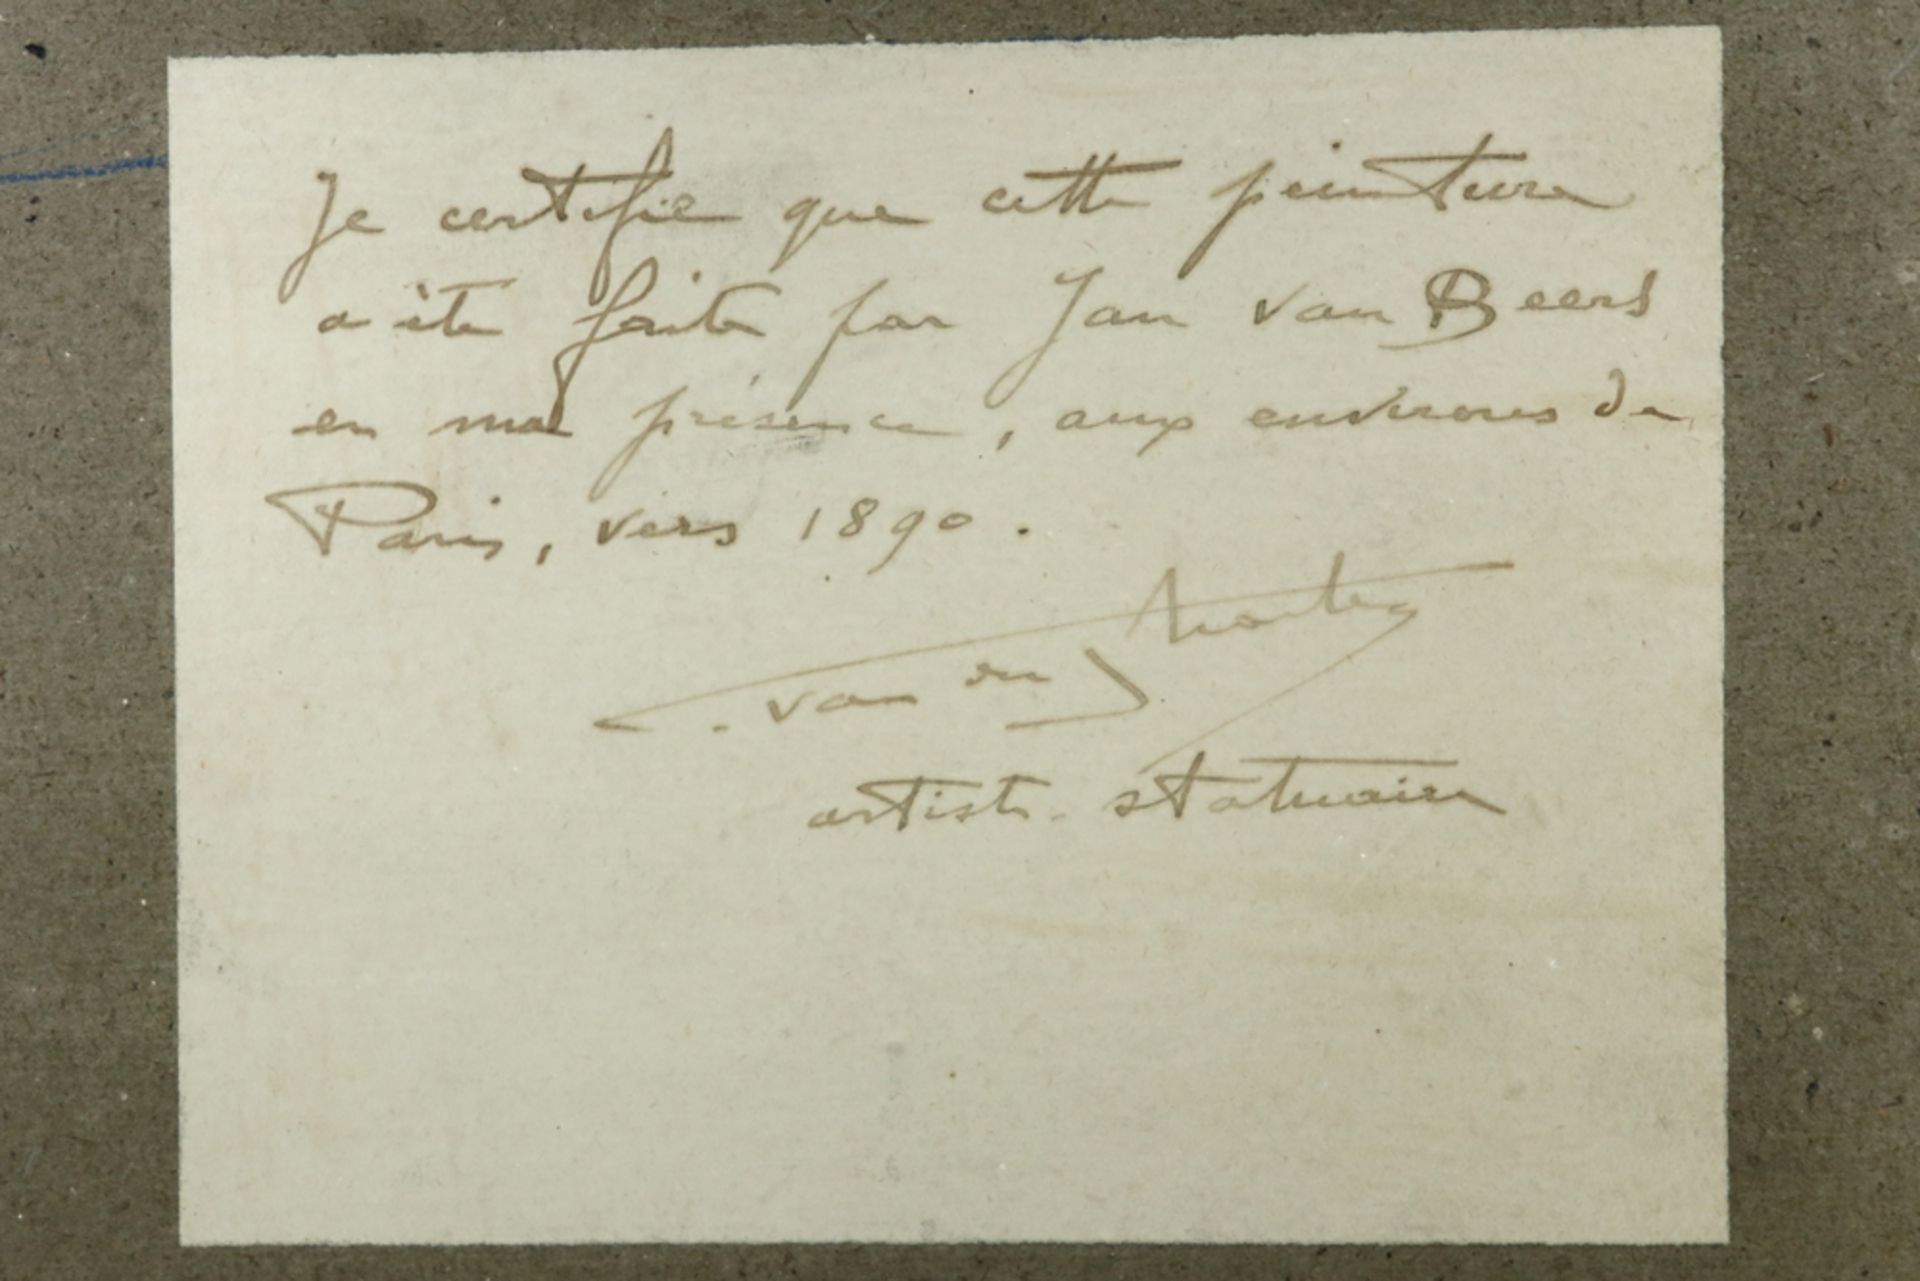 Je certifie que cette peinture
a été faite par Jan van Beers
en ma présence, aux environs de
Paris, vers 1890.
van der
artiste. statuaire